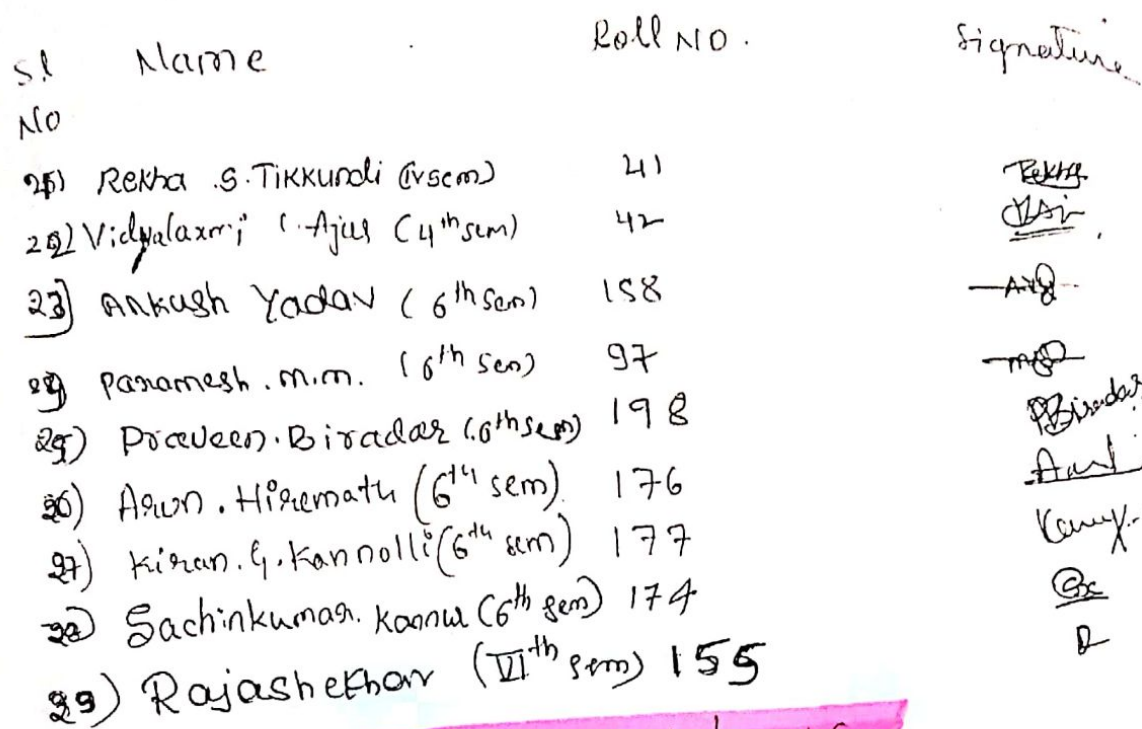 Sl Name Roll NO. Signature
No
21) Rekha .S. Tikkundi (IV sem) 41 Rekha
22) Vidyalaxmi (4th sem) 42
23) Ankush Yadav (6th sem) 158
24) Paramesh.m.m. (6th sem) 97
25) Praveen.Biradar (6th sem) 198 PBiradar
26) Arun.Hiremath (6th sem) 176
27) Kiran.G.Kannolli (6th sem) 177
28) Sachinkumar. Kannur (6th sem) 174
29) Rajashekhar (VIth sem) 155